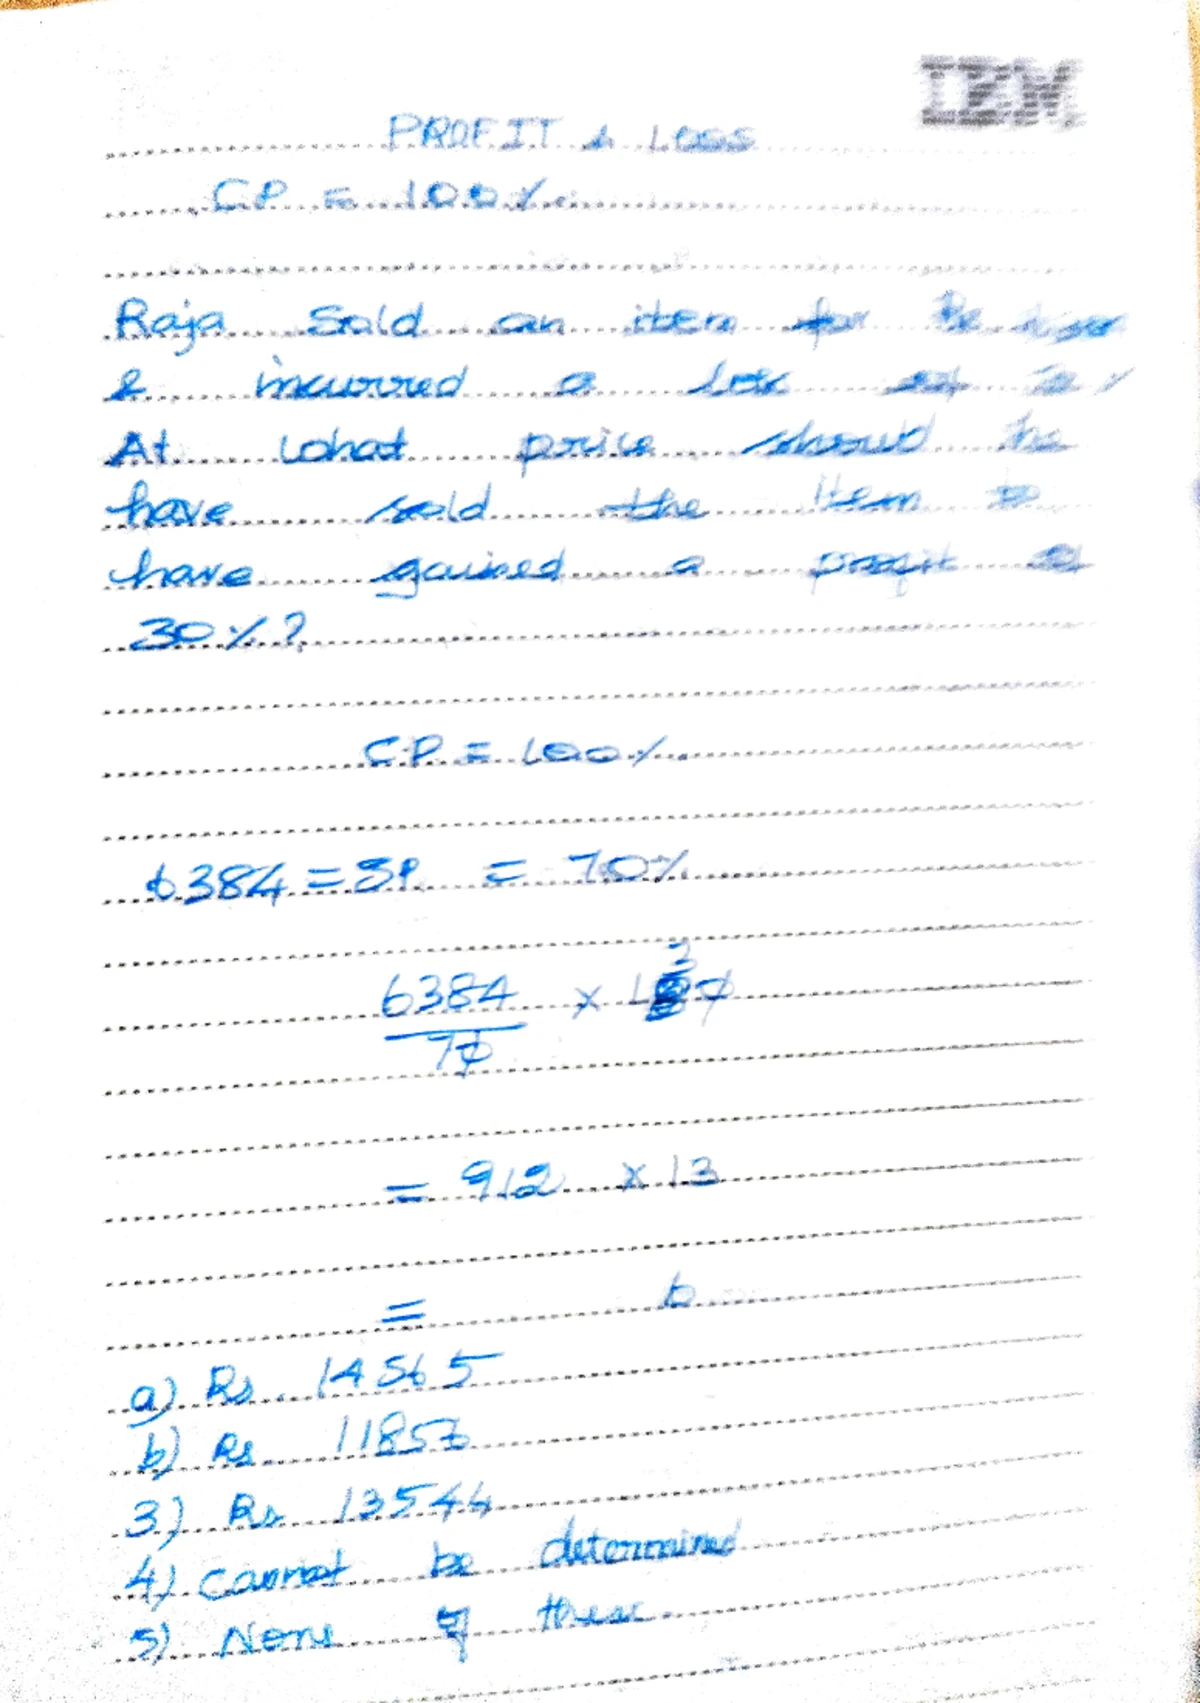 IBM
PROFIT & LOSS
CP = 100%
Raja Sold an item for Rs
& incurred a loss of
At what price should he
have sold the item to
have gained a profit of
30%?
CP = 100%
6384 = SP = 70%
3
6384 × 1 0
70
= 912 × 13
= 6
a) Rs. 14565
b) Rs 11856
3) Rs 13544
4) cannot be determined
5) None of these